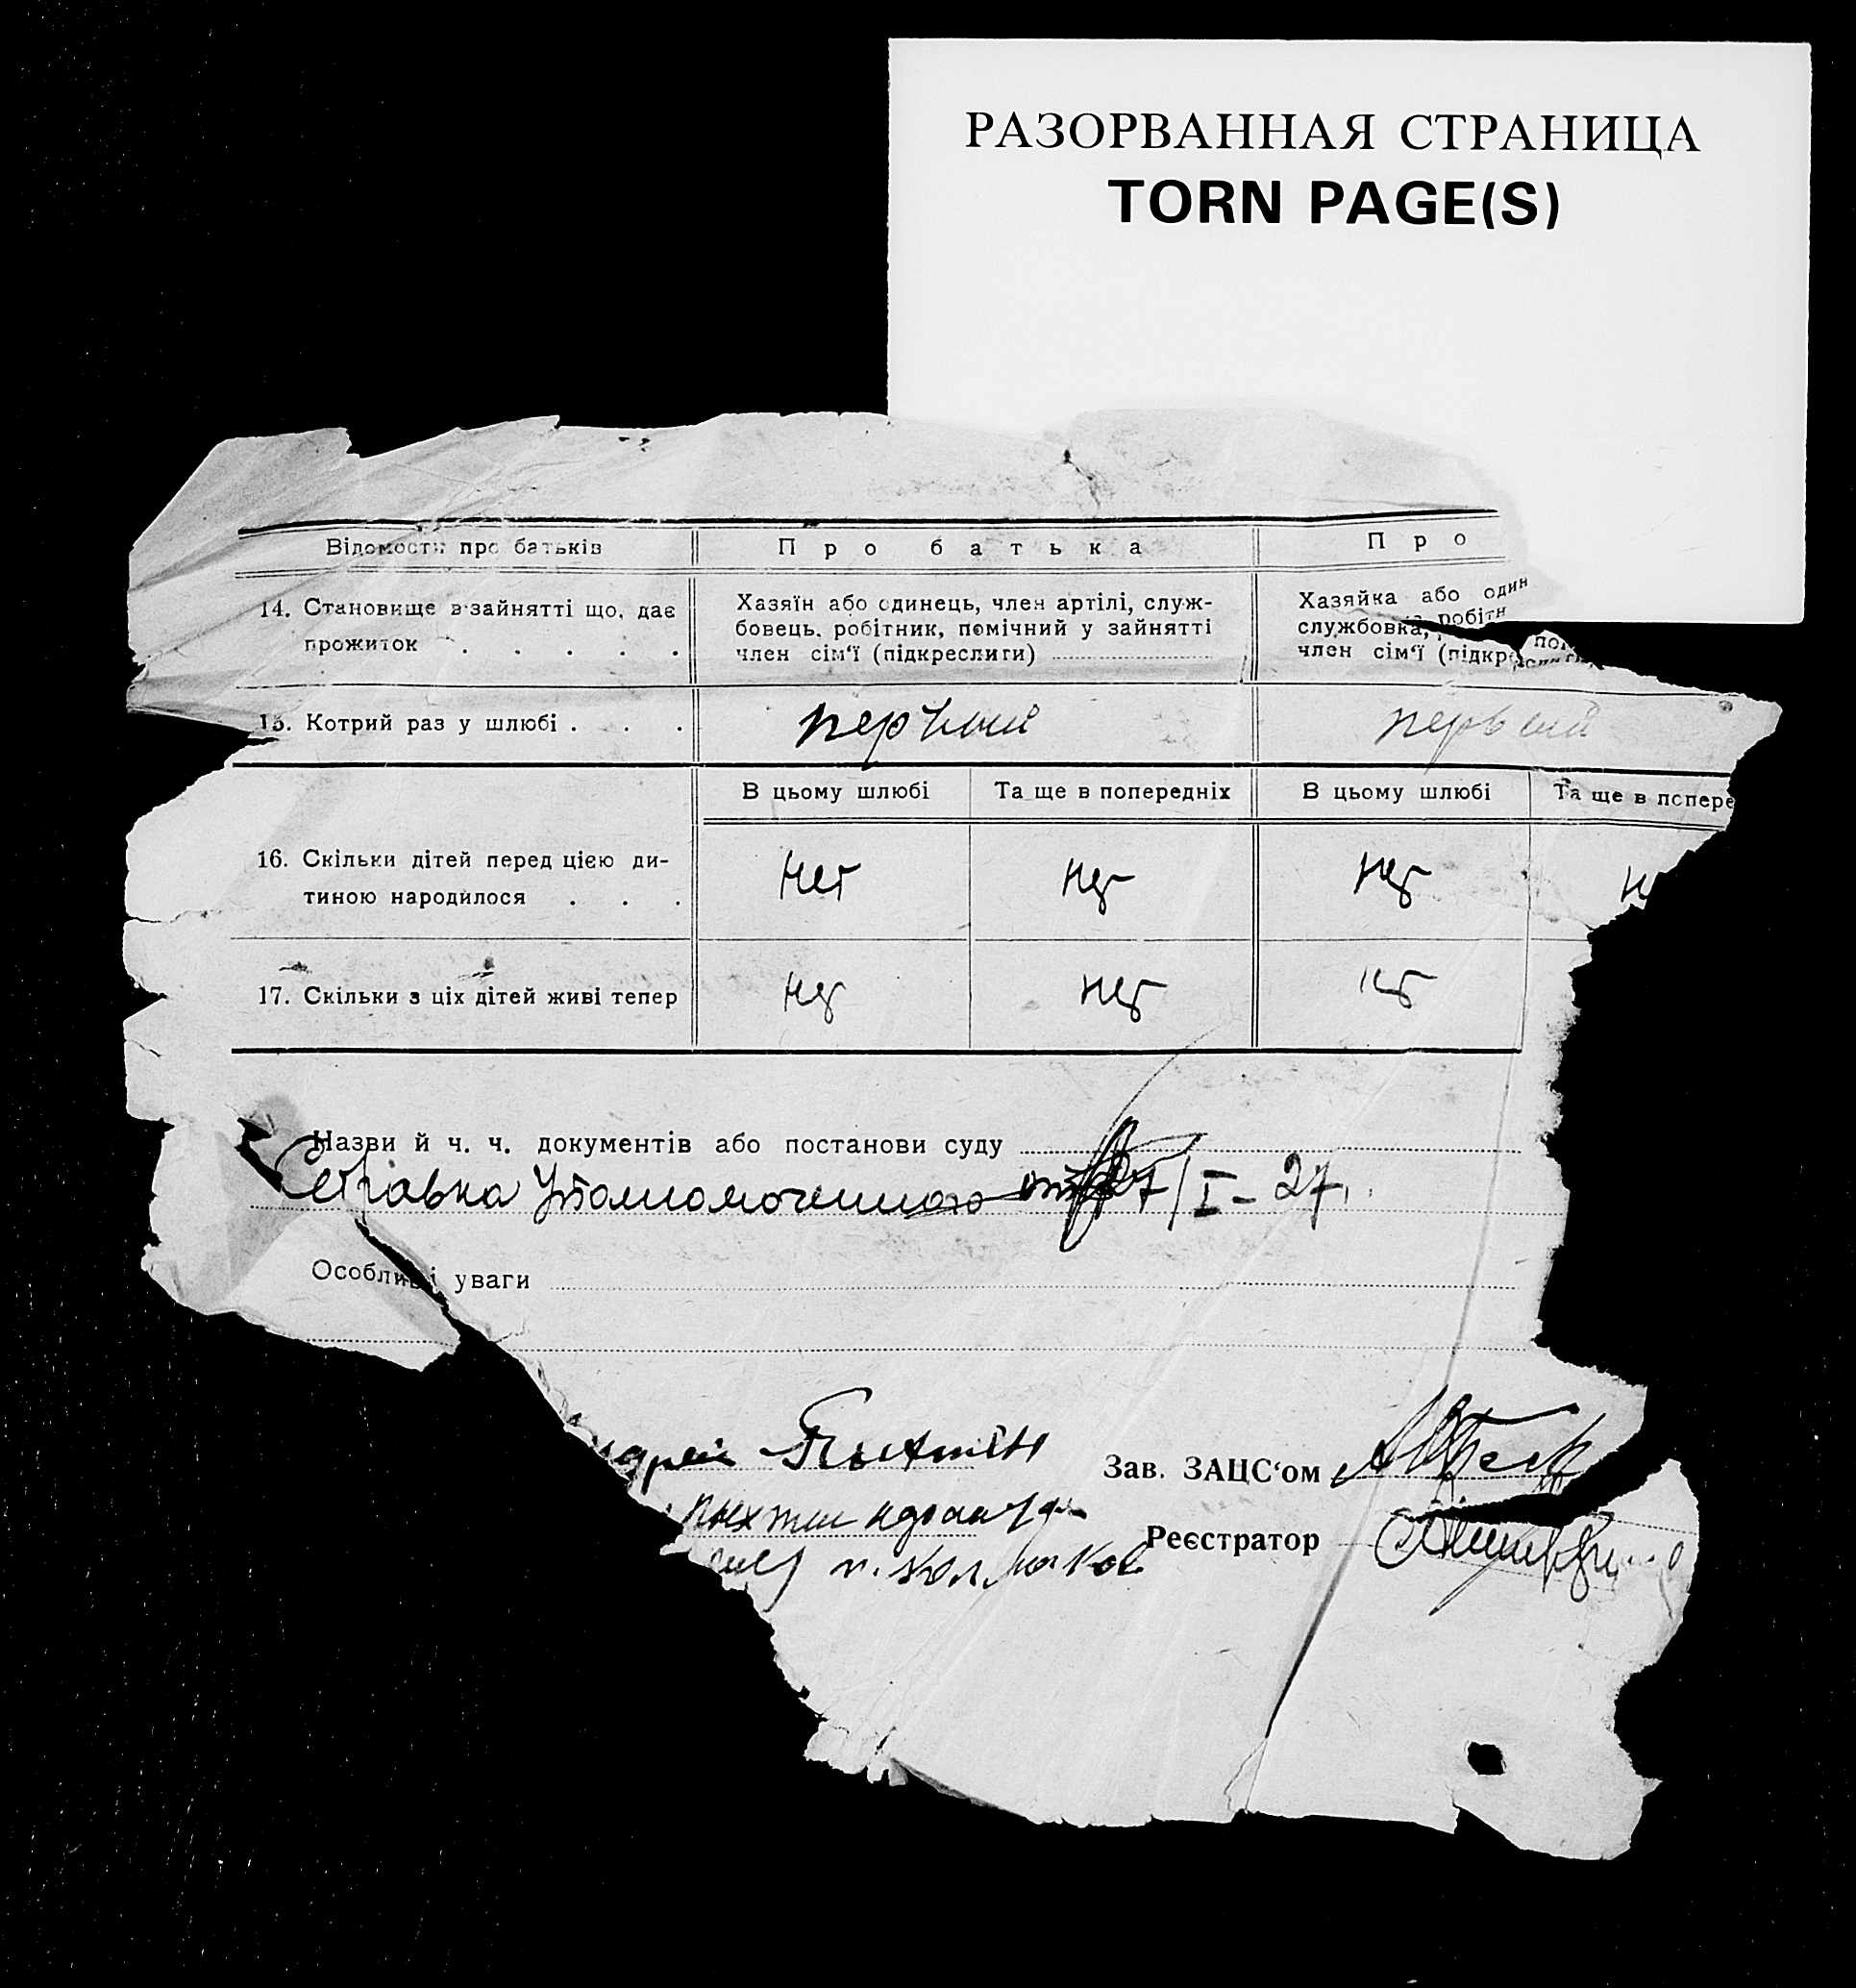 РАЗОРВАННАЯ СТРАНИЦА
TORN PAGE(S)
Відомости про батьків
Про батька
Про
14. Становище в зайнятті що, дає
прожиток . . . . .
Хазяїн або одинець, член артілі, служ-
бовець, робітник, помічний у зайнятті
член сім‘ї (підкреслиги)
Хазяйка або один
службовка, робітн
член сім‘ї (підкре
15. Котрий раз у шлюбі . . .
первый
первый
В цьому шлюбі
Та ще в попередніх
В цьому шлюбі
Та ще в попере
16. Скільки дітей перед цією ди-
тиною народилося . . .
нет
нет
нет
н
17. Скільки з ціх дітей живі тепер
нет
нет
нет
Назви й ч. ч. документів або постанови суду
Справка Уполномоченного от 27/I – 27
Особливі уваги
Зав. ЗАЦС‘ом
Реєстратор